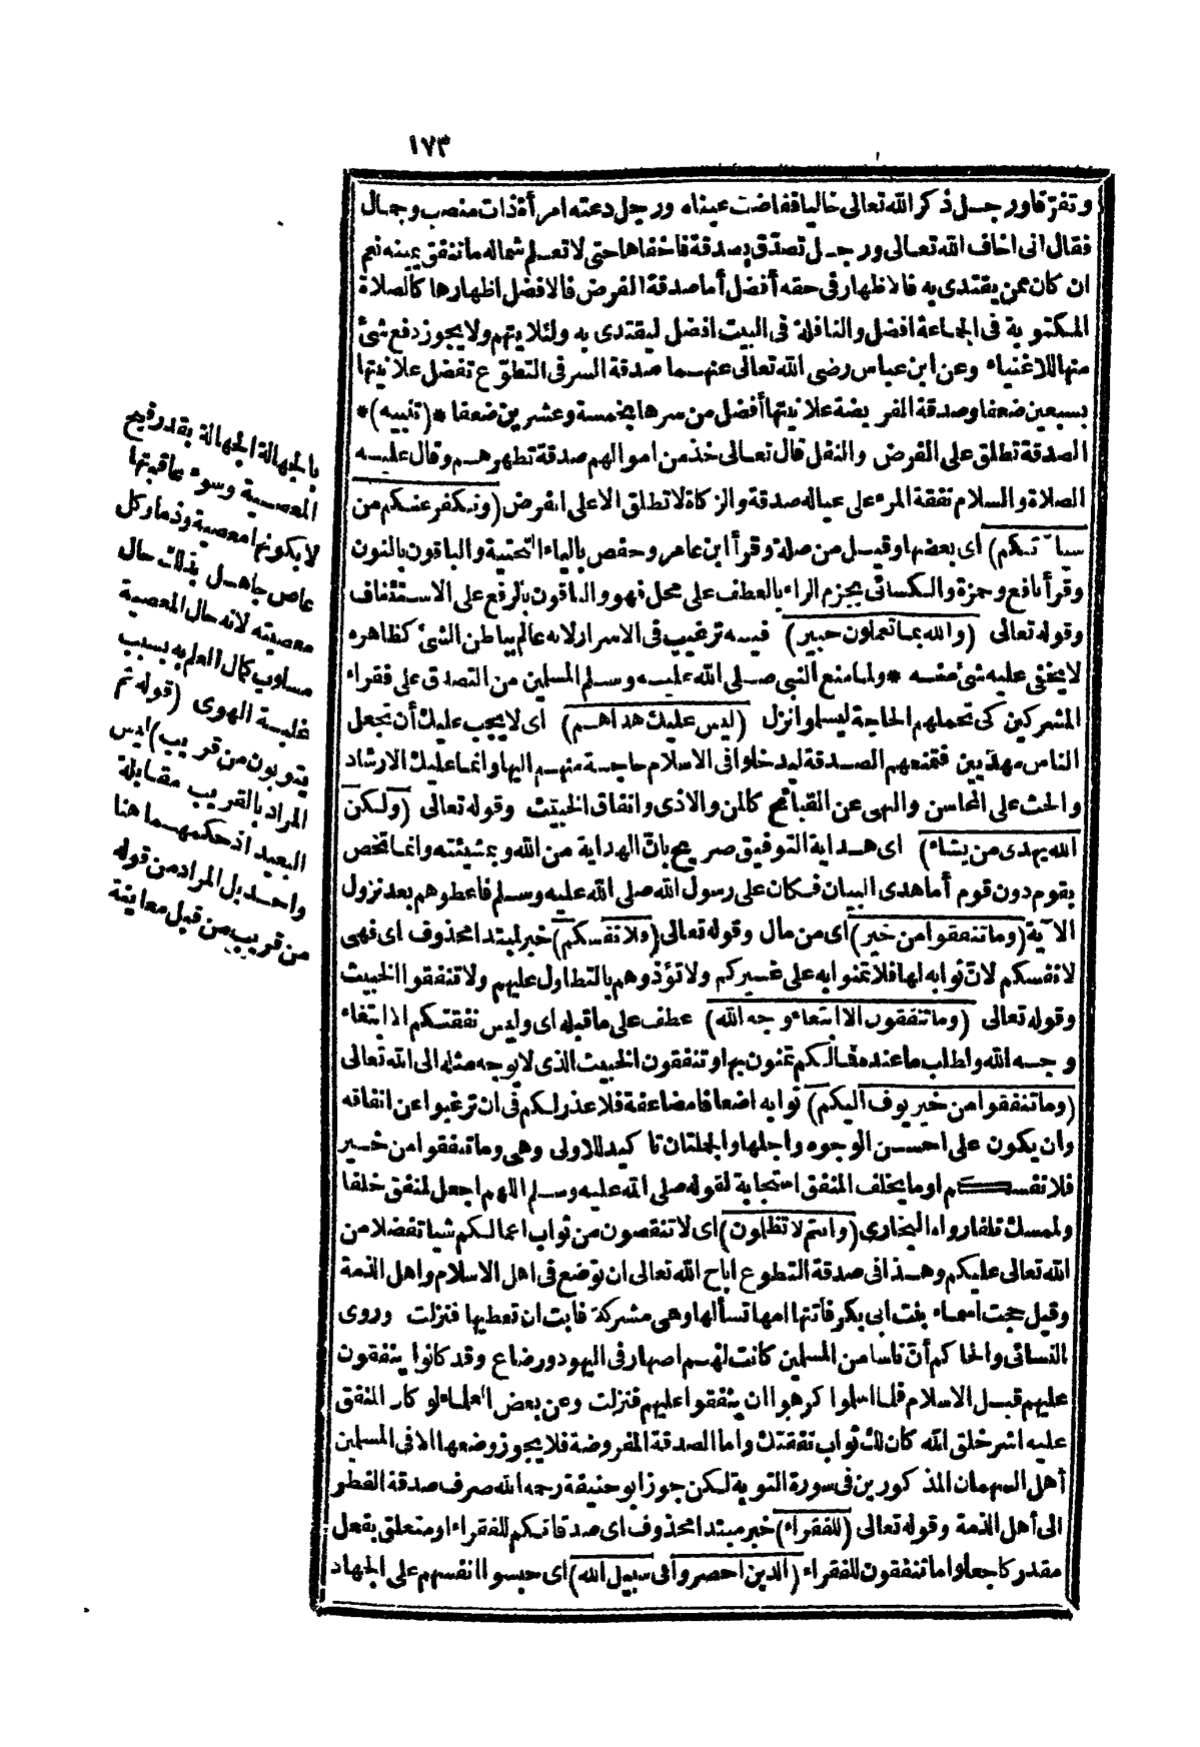 ١٧٣
وتفرقا ورجل ذكر الله تعالى خاليا ففاضت عيناه ورجل دعته امرأة ذات منصب وجمال
فقال انى اخاف الله تعالى ورجل تصدّق بصدقة فاخفاها حتى لا تعلم شماله ما تنفق يمينه نعم
ان كان ممن يقتدى به فالاظهار فى حقه أفضل أما صدقة الفرض فالافضل اظهارها كالصلاة
المكتوبة فى الجماعة افضل والنافلة فى البيت افضل ليقتدى به ولئلا يتهم ولا يجوز دفع شئ
منها للاغنياء وعن ابن عباس رضى الله تعالى عنهما صدقة السر فى التطوّع تفضل علانيتها
بسبعين ضعفا وصدقة الفريضة علانيتها أفضل من سرها بخمسة وعشرين ضعفا *(تنبيه)*
الصدقة تطلق على الفرض والنفل قال تعالى خذ من اموالهم صدقة تطهرهم وقال عليه
الصلاة والسلام نفقة المرء على عياله صدقة والزكاة لا تطلق الا على الفرض (ونكفر عنكم من
سيآتكم) اى بعضها وقيل من صلة وقرأ ابن عامر وحفص بالياء التحتية والباقون بالنون
وقرأ نافع وحمزة والكسائى بجزم الراء بالعطف على محل فهو والباقون بالرفع على الاستئناف
وقوله تعالى (والله بما تعملون خبير) فيه ترغيب فى الاسرار لانه عالم بباطن الشئ كظاهره
لا يخفى عليه شئ منه * ولما منع النبى صلى الله عليه وسلم المسلمين من التصدق على فقراء
المشركين كى تحملهم الحاجة ليسلموا نزل (ليس عليك هداهم) اى لا يجب عليك أن تجعل
الناس مهديين فتمنعهم الصدقة ليدخلوا فى الاسلام حاجة منهم اليها وانما عليك الارشاد
والحث على المحاسن والنهى عن القبائح كالمن والاذى وانفاق الخبيث وقوله تعالى (ولكن
الله يهدى من يشاء) اى هداية التوفيق صريح بانّ الهداية من الله وبمشيئته وانما تخص
بقوم دون قوم أما هدى البيان فكان على رسول الله صلى الله عليه وسلم فاعطوهم بعد نزول
الآية (وما تنفقوا من خير) اى من مال وقوله تعالى (فلانفسكم) خبر لمبتدا محذوف اى فهى
لانفسكم لانّ ثوابه لها فلا تمنوا به على غيركم ولا تؤذوهم بالتطاول عليهم ولا تنفقوا الخبيث
وقوله تعالى (وما تنفقون الا ابتغاء وجه الله) عطف على ما قبله اى وليس نفقتكم الا ابتغاء
وجه الله واطلب ما عنده فمالكم تمنون بها وتنفقون الخبيث الذى لا يوجه مثله الى الله تعالى
(وما تنفقوا من خير يوف اليكم) ثوابه اضعافا مضاعفة فلا عذر لكم فى ان ترغبوا عن انفاقه
وان يكون على احسن الوجوه واجلها والجملتان تاكيد للاولى وهى وما تنفقوا من خير
فلانفسكم او ما يخلف المنفق استجابة لقوله صلى الله عليه وسلم اللهم اجعل لمنفق خلفا
ولممسك تلفا رواه البخارى (وانتم لا تظلمون) اى لا تنقصون من ثواب اعمالكم شيا تفضلا من
الله تعالى عليكم وهذا فى صدقة التطوع اباح الله تعالى ان توضع فى اهل الاسلام واهل الذمة
وقيل حجت اسماء بنت ابى بكر فأتتها امها تسألها وهى مشركة فابت ان تعطيها فنزلت وروى
النسائى والحاكم أنّ ناسا من المسلمين كانت لهم اصهار فى اليهود ورضاع وقد كانوا ينفقون
عليهم قبل الاسلام فلما اسلموا كرهوا ان ينفقوا عليهم فنزلت وعن بعض العلماء لو كان المنفق
عليه اشر خلق الله كان لك ثواب نفقتك واما الصدقة المفروضة فلا يجوز وضعها الا فى المسلمين
أهل السهمان المذكورين فى سورة التوبة لكن جوز ابو حنيفة رحمه الله صرف صدقة الفطر
الى أهل الذمة وقوله تعالى (للفقراء) خبر مبتدا محذوف اى صدقاتكم للفقراء او متعلق بفعل
مقدر كاجعلوا ما تنفقون للفقراء (الذين احصروا فى سبيل الله) اى حبسوا انفسهم على الجهاد
بالجهالة الجهالة بقدر قبح
المعصية وسوء عاقبتها
لا بكونها معصية وذما وكل
عاص جاهل بذلك حال
معصيته لانه حال المعصية
مسلوب كمال العلم به بسبب
غلبة الهوى (قوله ثم
يتوبون من قريب) ليس
المراد بالقريب مقابلة
البعيد اذ حكمهما هنا
واحد بل المراد من قوله
من قريب من قبل معاينة